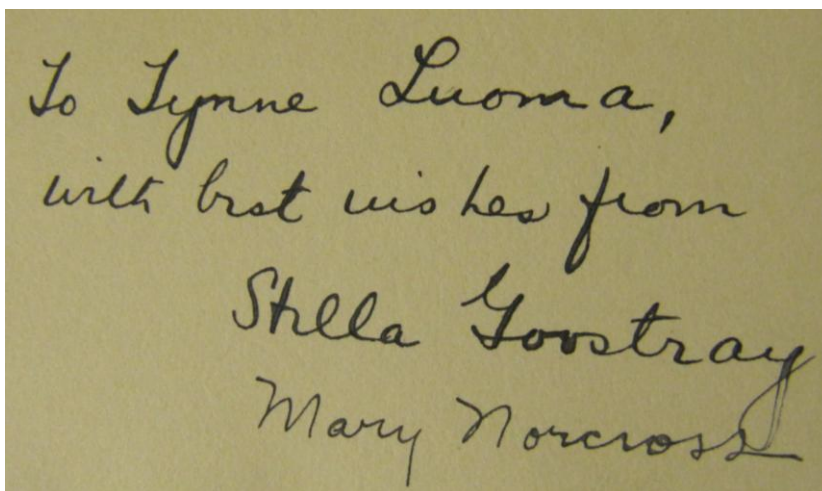 To Lynne Luoma,
with best wishes from
Stella Goostray
Mary Norcross